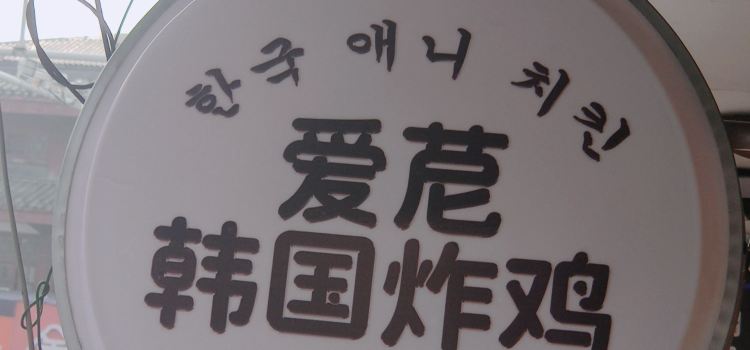 한국 애니 치킨
爱苨
韩国炸鸡